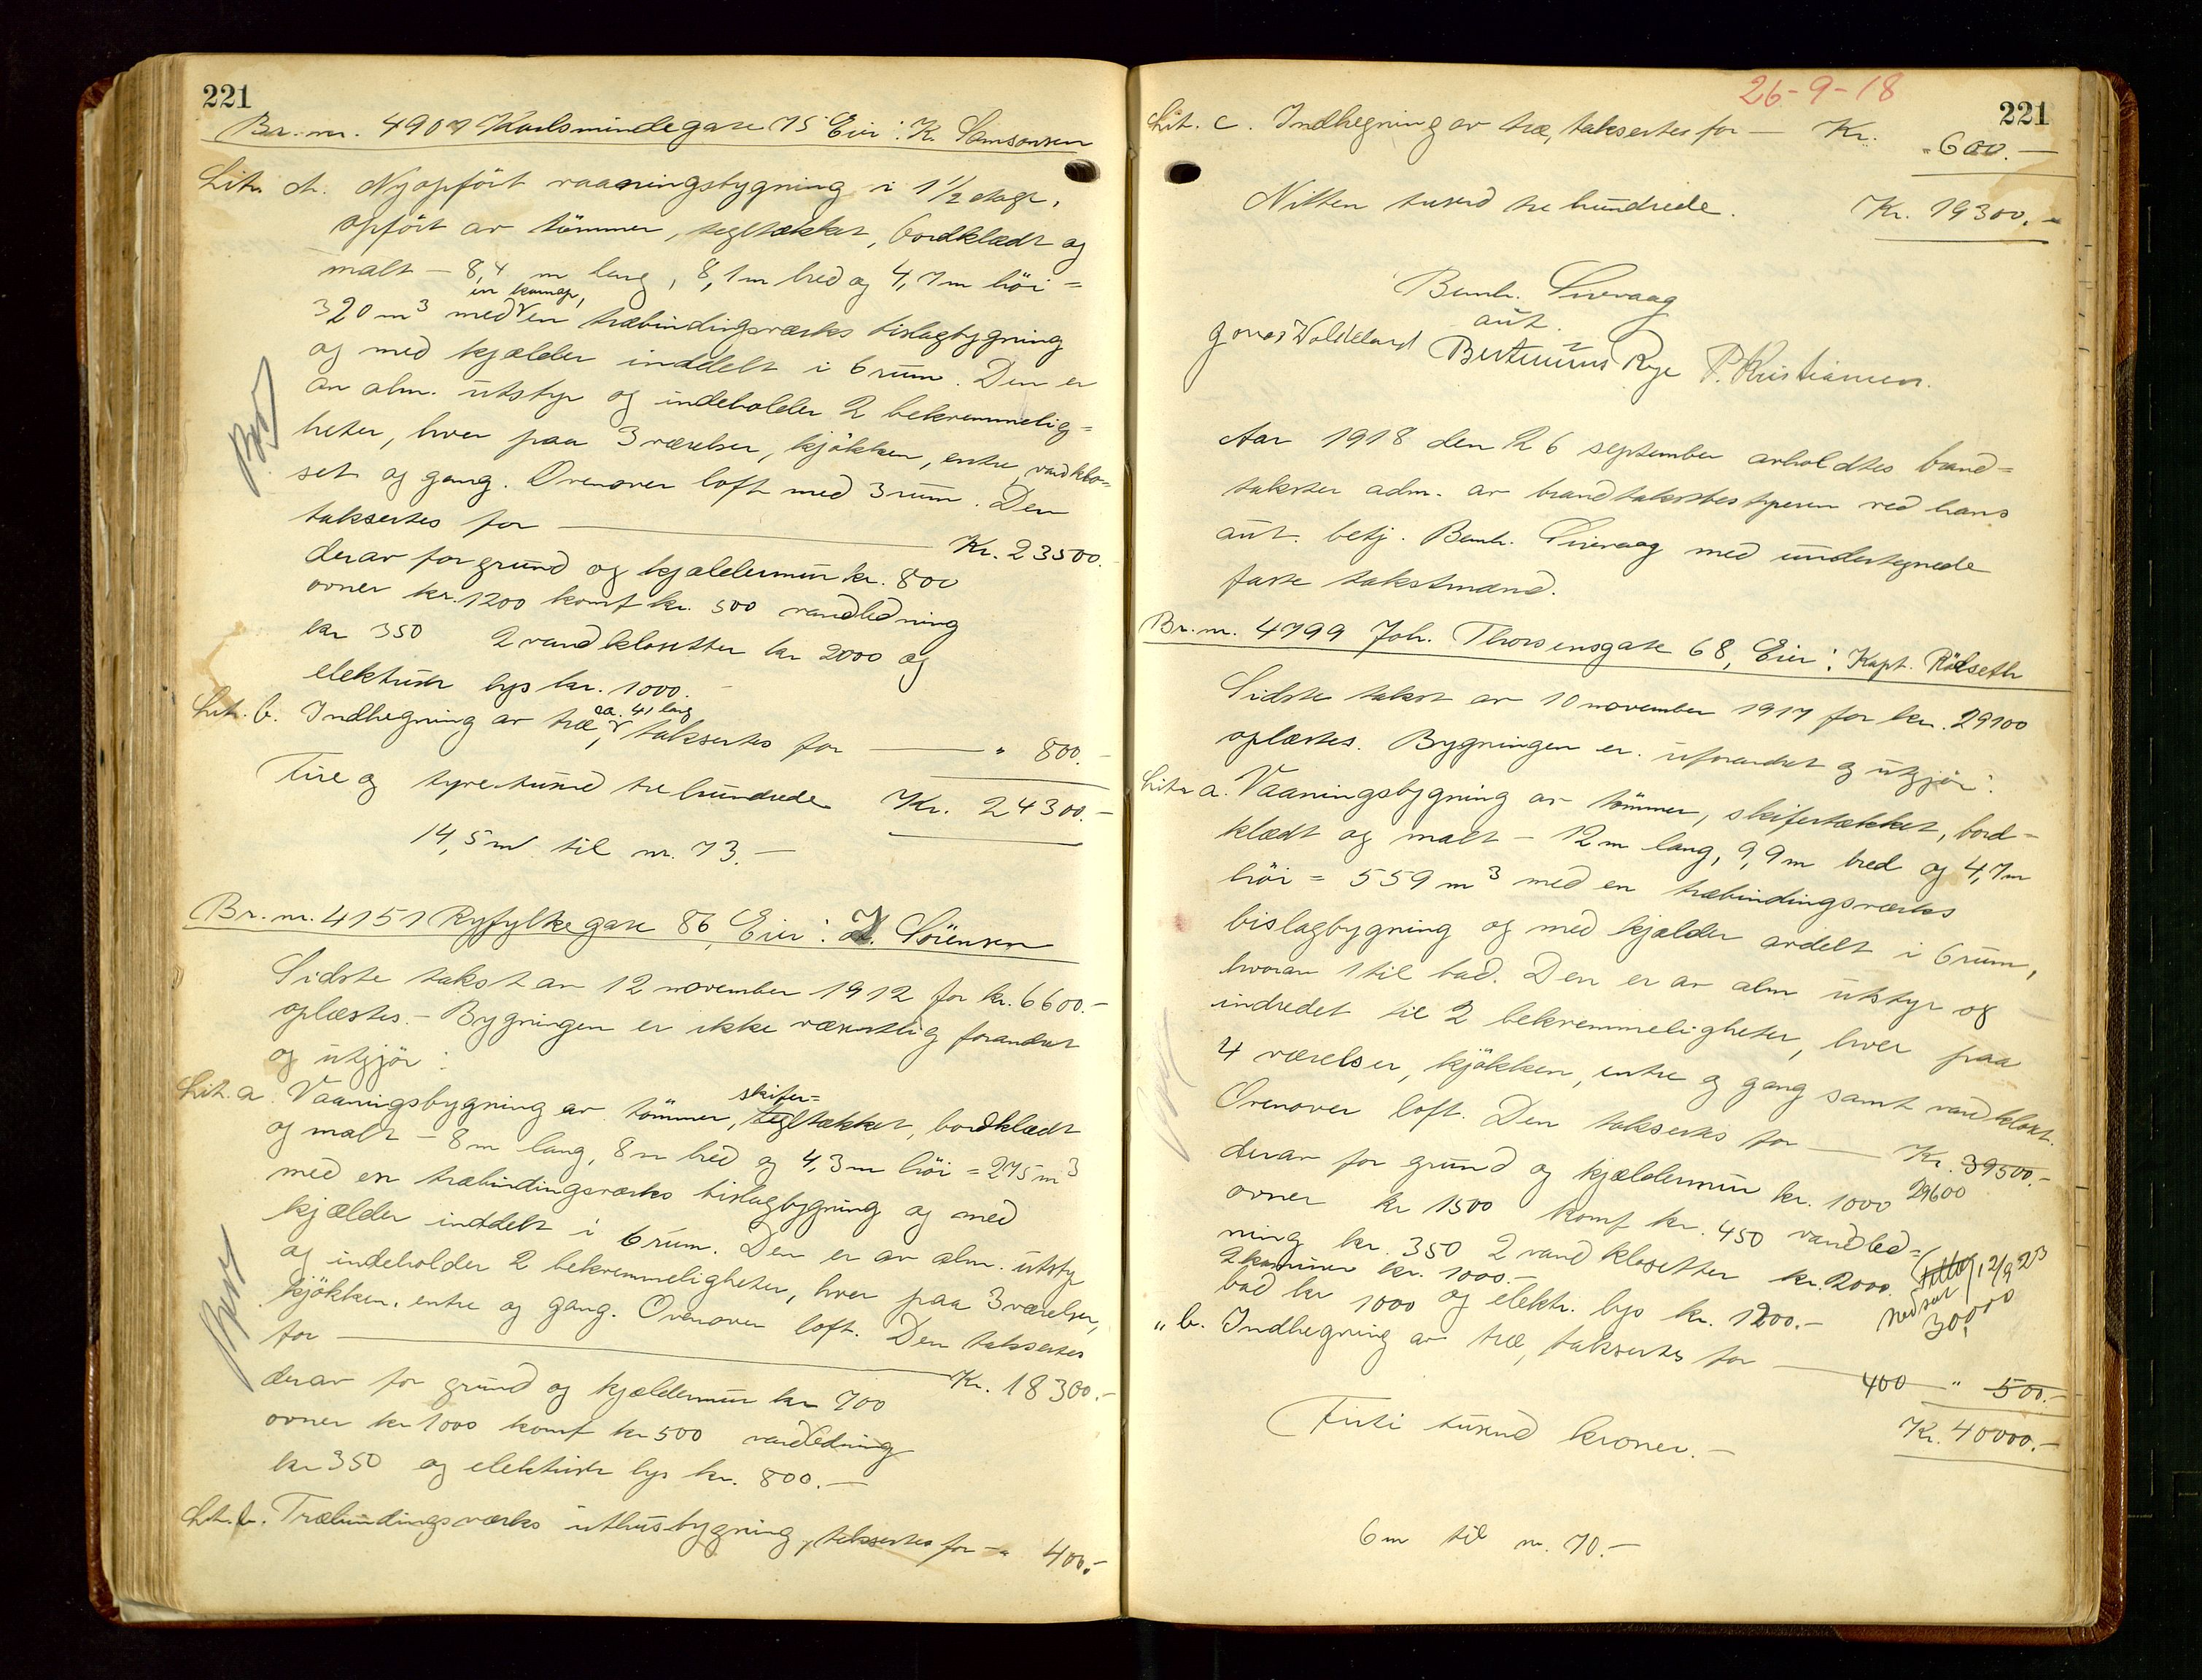 221
Br. nr. 4907 Karlsmindegate 75 Eier: K. Samsonsen
Litr. A. Nyopført vaaningsbygning i 1 1/2 etage,
opført av tømmer, tegltækket, bordklædt og
malt – 8,4 m lang, 8,1 m bred og 4,7 m høi =
en karnap,
320 m³ med en træbindingsverks bislagbygning
og med kjælder inddelt i 6 rum. Den er
av alm. utstyr og indeholder 2 bekvemmelig=
heter, hver paa 3 værelser, kjøkken, entre, vandklo=
set og gang. Ovenover loft med 3 rum. Den
taksertes for — Kr. 23500.
derav for grund og kjældermur kr. 800
ovner kr. 1200 komf kr. 500 vandledning
kr 350 2 vandklosetter kr 2000 og
elektrisk lys kr. 1000.–
ca. 41 lang
Lit. b. Indhegning av træ, taksertes for — " 800.–
Fire og tyve tusind tre hundrede Kr. 24300.–
14,5 m til nr. 73.–
Br. nr. 4151 Ryfylkegate 86, Eier: Sørensen
Sidste takst av 12 november 1912 for kr. 6600.–
oplæstes.– Bygningen er ikke væsentlig forandret
og utgjør:
skifer=
Lit. a. Vaaningsbygning av tømmer, tegltækket, bordklædt
og malt – 8 m lang, 8 m bred og 4,3 m høi = 275 m³
med en træbindingsverks bislagbygning og med
kjælder inddelt i 6 rum. Den er av alm. utstyr
og indeholder 2 bekvemmeligheter, hver paa 3 værelser,
kjøkken, entre og gang. Ovenover loft. Den taksertes
for — Kr. 18300.–
derav for grund og kjældermur kr 700
ovner kr 1000 komf kr 500 vandledning
kr 350 og elektrisk lys kr. 800.–
Lit. b. Træbindingsverks uthusbygning, taksertes for – " 400.–
26-9-18
221
Lit. c. Indhegning av træ, taksertes for — Kr. " 600.–
Nitten tusind tre hundrede. Kr. 19300.–
Bernh. Sirevaag
aut.
Jonas Waldeland Bertinius Rege P. Kristiansen.
Aar 1918 den 26 september avholdtes brand=
takster adm. av brandtakstbestyreren ved hans
aut. betj. Bernh. Sirevaag med undertegnede
faste takstmænd.
Br. nr. 4799 Joh. Thorsensgate 68, Eier: Kapt. Rølseth
Sidste takst av 10 november 1917 for kr. 29100
oplæstes. Bygningen er uforandret og utgjør:
Litr a. Vaaningsbygning av tømmer, skifertækket, bord=
klædt og malt – 12 m lang, 9,9 m bred og 4,7 m
høi = 559 m³ med en træbindingsverks
bislagbygning og med kjælder avdelt i 6 rum,
hvorav 1 til bad. Den er av alm utstyr og
indredet til 2 bekvemmeligheter, hver paa
4 værelser, kjøkken, entre og gang samt vandkloset.
Ovenover loft. Den taksertes for — Kr. 39500.–
derav for grund og kjældermur kr. 1000 29600
ovner kr 1500 komf kr. 450 vandled=
ning kr. 350 2 vandklosetter kr. 2000. 12/9 23
2 kaminer kr. 1000.– Nedsat
bad kr 1000 og elektr. lys kr. 1200.– 30000
" b. Indhegning av træ, taksertes for — 400 " 500.–
Firti tusind kroner.– Kr. 40000.–
6 m til nr. 70.–